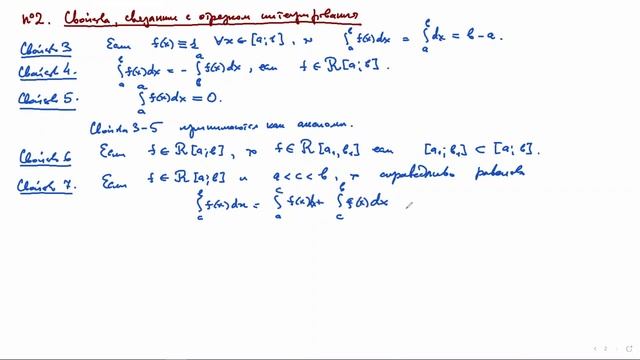 п°2. Свойства, связанные с отрезком интегрирования
Свойство 3 Если f(x)≡1 ∀x∈[a;b], то ∫_a^b f(x)dx = ∫_a^b dx = b-a.
Свойство 4. ∫_a^b f(x)dx = -∫_b^a f(x)dx, если f∈R[a;b].
Свойство 5. ∫_a^a f(x)dx = 0.
Свойства 3-5 принимаются как аксиомы.
Свойство 6 Если f∈R[a;b], то f∈R[a₁,b₁] если [a₁;b₁]⊂[a;b].
Свойство 7. Если f∈R[a;b] и a<c<b, то справедливо равенство
∫_a^b f(x)dx = ∫_a^c f(x)dx + ∫_c^b f(x)dx
2